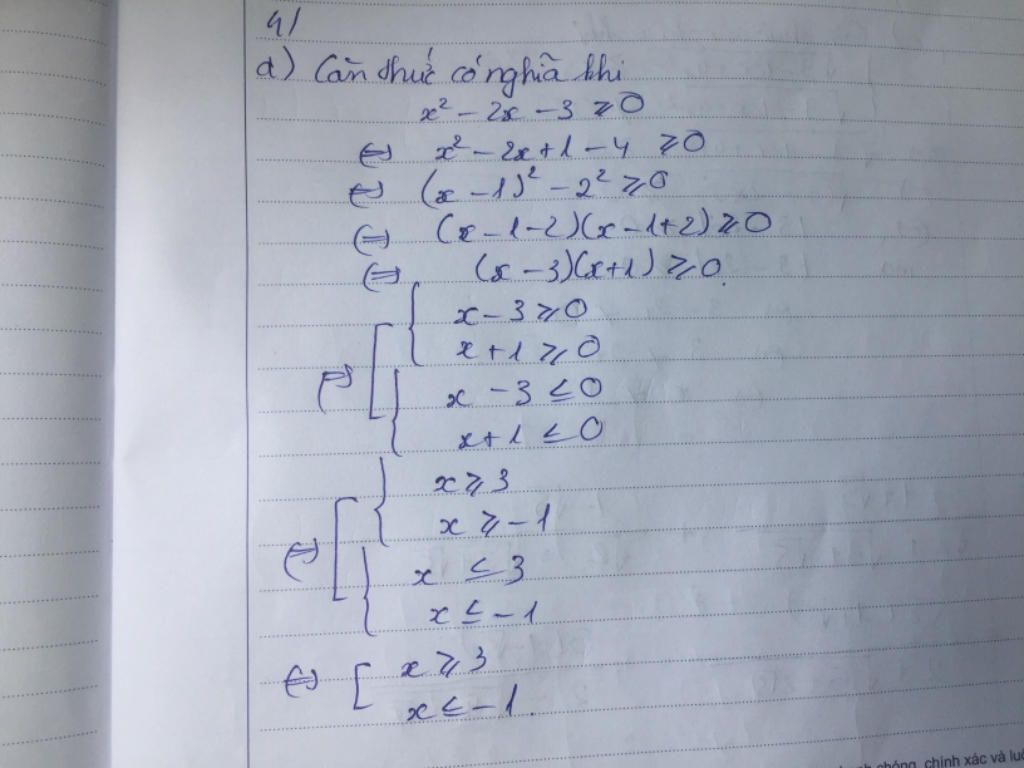 4/
a) Căn thức có nghĩa khi
x² - 2x - 3 ⩾ 0
⇔ x² - 2x + 1 - 4 ⩾ 0
⇔ (x - 1)² - 2² ⩾ 0
⇔ (x - 1 - 2)(x - 1 + 2) ⩾ 0
⇔ (x - 3)(x + 1) ⩾ 0.
x - 3 ⩾ 0
x + 1 ⩾ 0
⇔ [ { x - 3 ≤ 0
x + 1 ≤ 0
x ⩾ 3
x ⩾ -1
⇔ [ { x ≤ 3
x ≤ -1
⇔ [ x ⩾ 3
x ≤ -1.
chóng, chính xác và